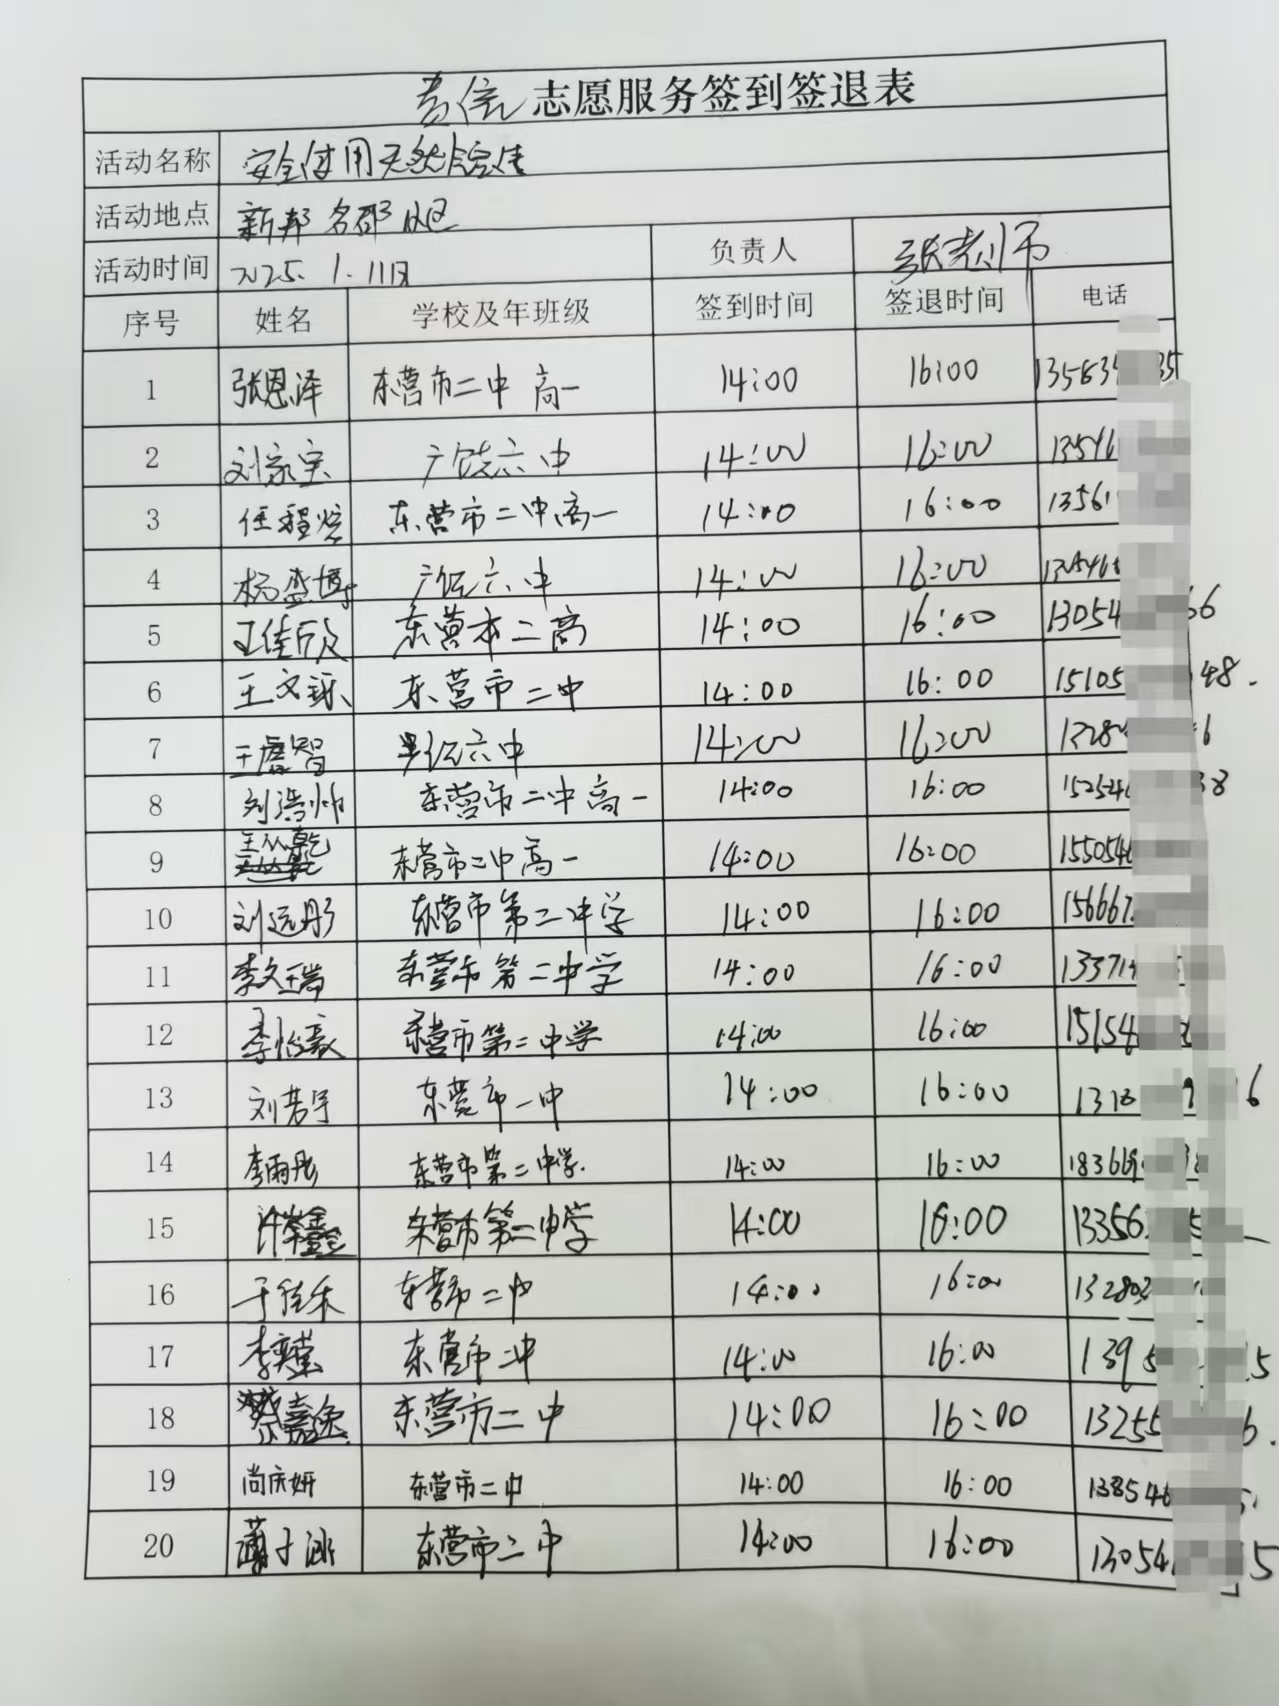 志愿服务签到签退表
活动名称 安全使用天然气宣传
活动地点 新邦名都小区
活动时间 2025.1.11日 负责人 张老师
序号 姓名 学校及年班级 签到时间 签退时间 电话
1 张恩泽 东营市二中 高一 14:00 16:00 13583 35
2 刘家宝 广饶六中 14:00 16:00 13546
3 任程 东营市二中高一 14:00 16:00 13561
4 杨盛博 广饶六中 14:00 16:00
5 王佳欣 东营市二高 14:00 16:00 13054 66
6 王文 东营市二中 14:00 16:00 15105 48.
7 王虞智 六中 14:00 16:00 1328 6
8 刘浩帅 东营市二中高一 14:00 16:00 152546 38
9 王从乾 东营市二中高一 14:00 16:00 155054
10 刘远彤 东营市第二中学 14:00 16:00 156667
11 李文瑞 东营市第二中学 14:00 16:00 13371
12 李怡 东营市第二中学 14:00 16:00 15154
13 刘芳宇 东营市一中 14:00 16:00 1318 9 6
14 李雨彤 东营市第二中学. 14:00 16:00 18366
15 许 鑫 东营市第一中学 14:00 16:00 13356 5
16 于佳禾 东营市二中 14:00 16:00 13280
17 李 东营市二中 14:00 16:00 1395 5
18 蔡嘉逸 东营市二中 14:00 16:00 13255 6.
19 尚庆妍 东营市二中 14:00 16:00 138546
20 薄子涵 东营市二中 14:00 16:00 13054 5